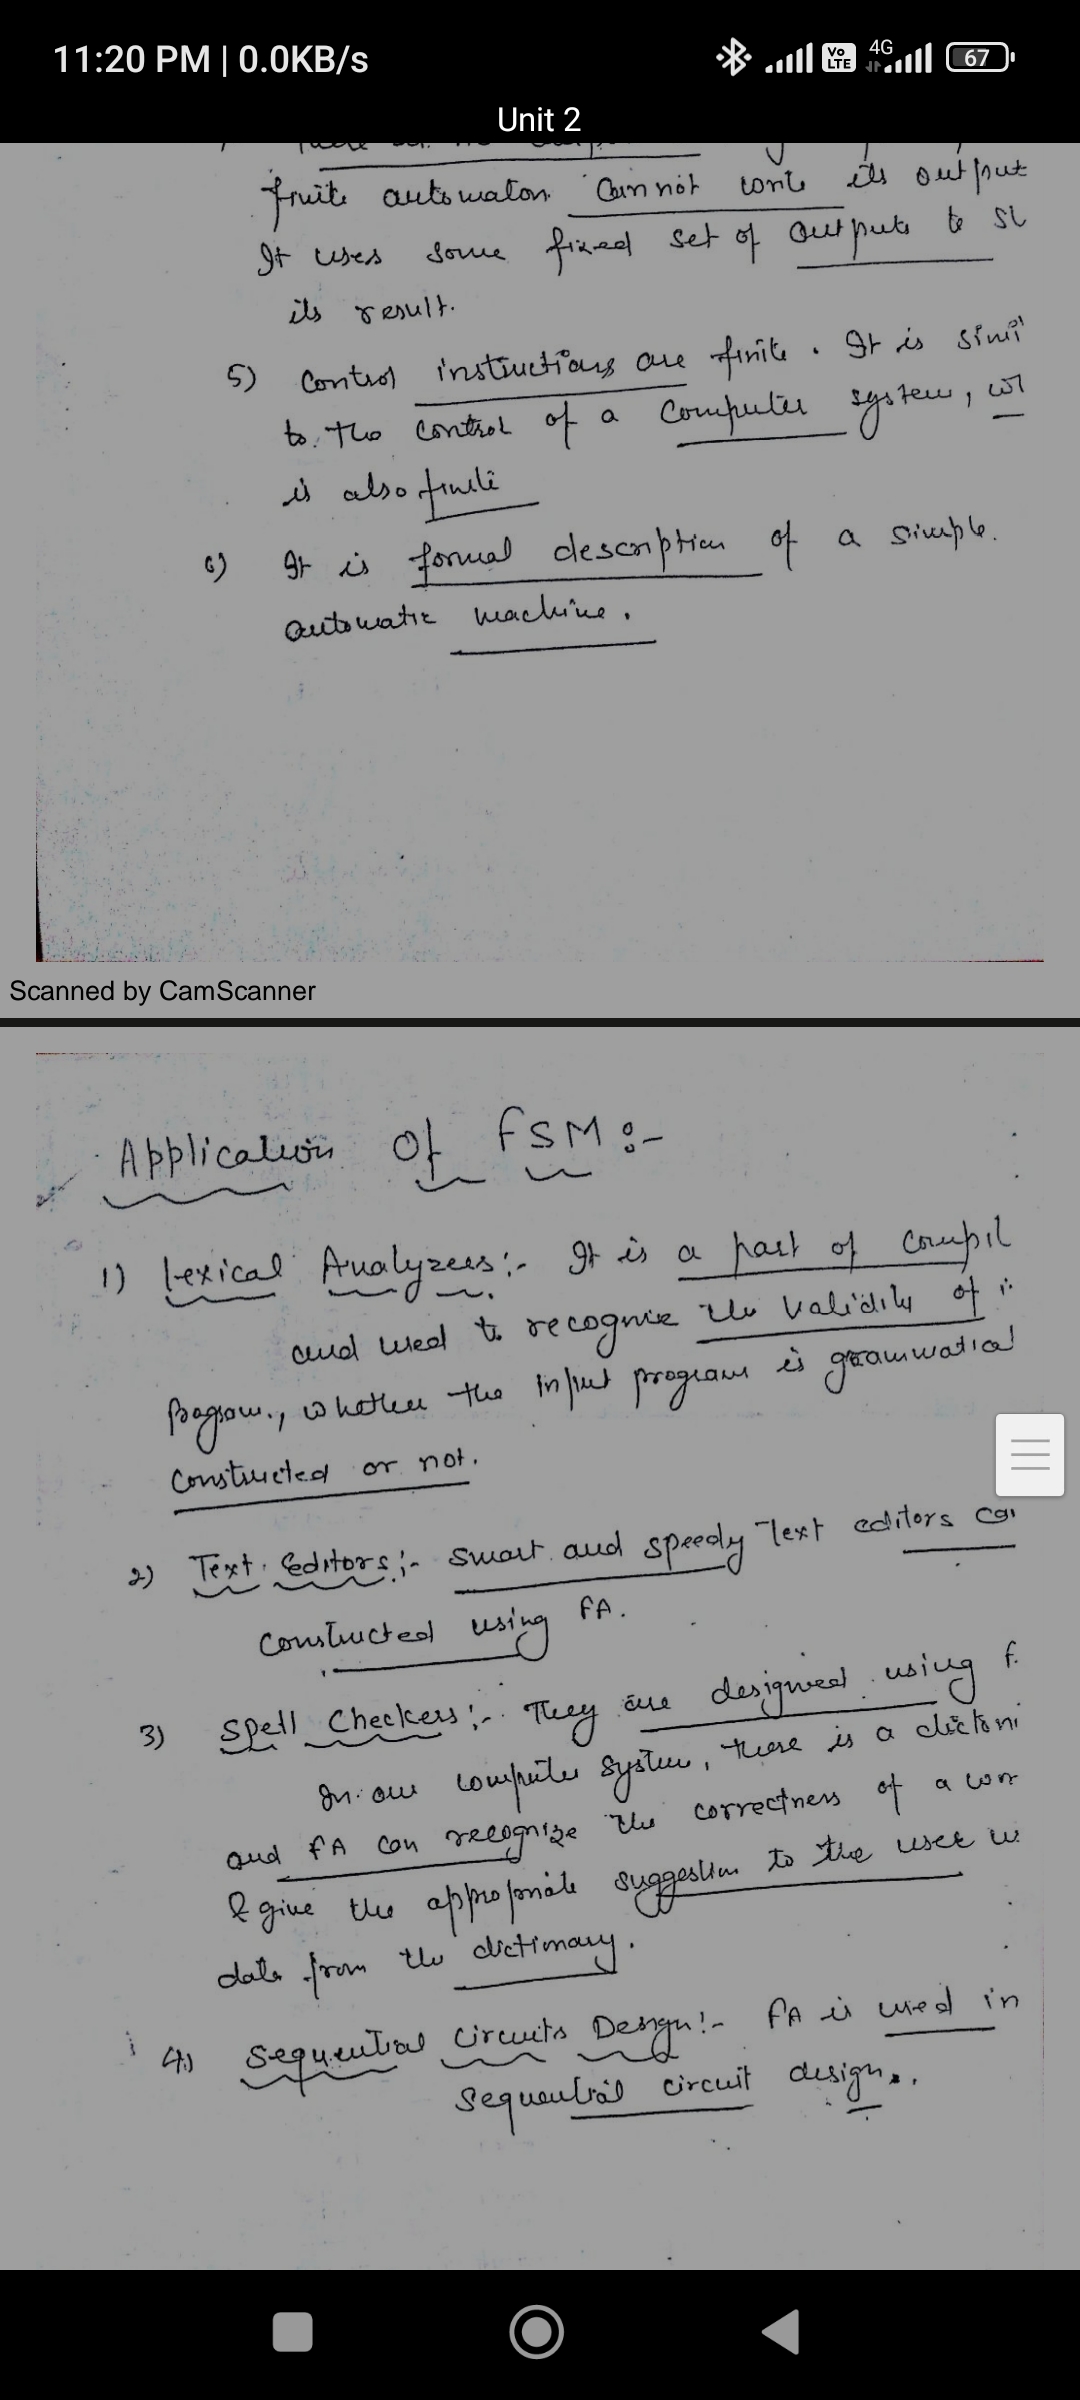 11:20 PM | 0.0KB/s Vo LTE 4G 67
Unit 2
finite automaton cannot write its output
It uses some fixed set of outputs to
its result.
5) Control instructions are finite. It is
to the control of a computer system,
is also finite
6) It is formal description of a simple
automatic machine.
Scanned by CamScanner
Application Of FSM:-
1) Lexical Analyzers:- It is a part of
and used to recognize the validity of
program., whether the input program is
constructed or not.
2) Text Editors:- smart and speedy Text editors
constructed using FA.
3) Spell Checkers:- They are designed using
In our computer system, there is a
and FA can recognize the correctness of a
& give the appropriate suggestion to the user
data from the dictionary.
4) Sequential Circuits Design:- FA is used in
sequential circuit design.